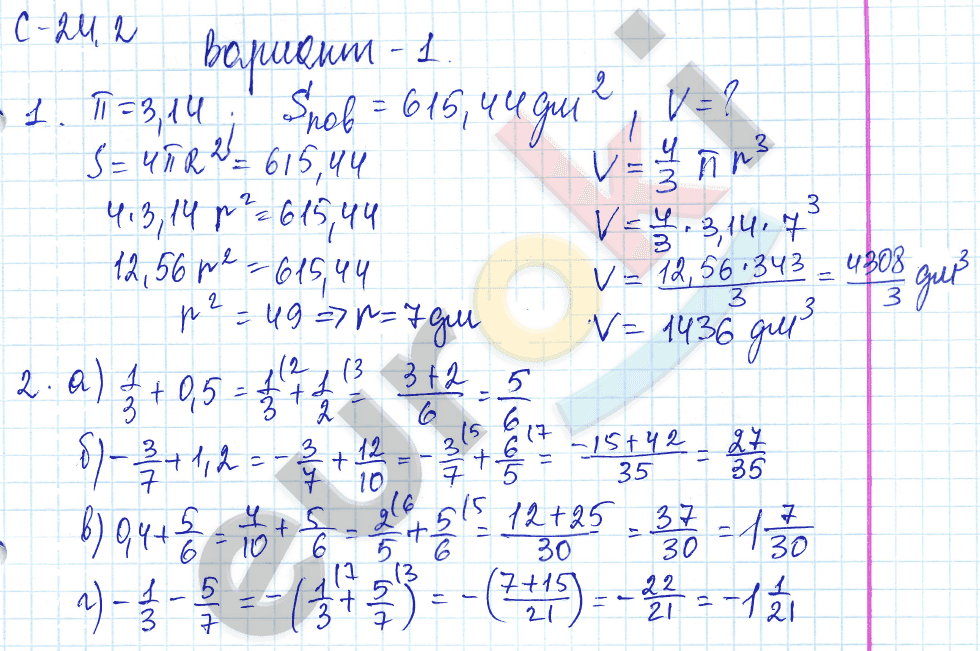 С-24.2
Вариант - 1.
1. π = 3,14; Sпов = 615,44 дм², V = ?
S = 4πR² = 615,44
V = 4/3 π r³
4·3,14 r² = 615,44
V = 4/3 · 3,14 · 7³
12,56 r² = 615,44
V = 12,56·343/3 = 4308/3 дм³
r² = 49 => r = 7 дм
V = 1436 дм³
2. а) 1/3 + 0,5 = 1/3 (2 + 1/2 (3 = 3+2/6 = 5/6
б) - 3/7 + 1,2 = - 3/7 + 12/10 = - 3/7 (5 + 6/5 (7 = -15+42/35 = 27/35
в) 0,4 + 5/6 = 4/10 + 5/6 = 2/5 (6 + 5/6 (5 = 12+25/30 = 37/30 = 1 7/30
г) - 1/3 - 5/7 = - (1/3 (7 + 5/7 (3) = - (7+15/21) = - 22/21 = -1 1/21
euroki